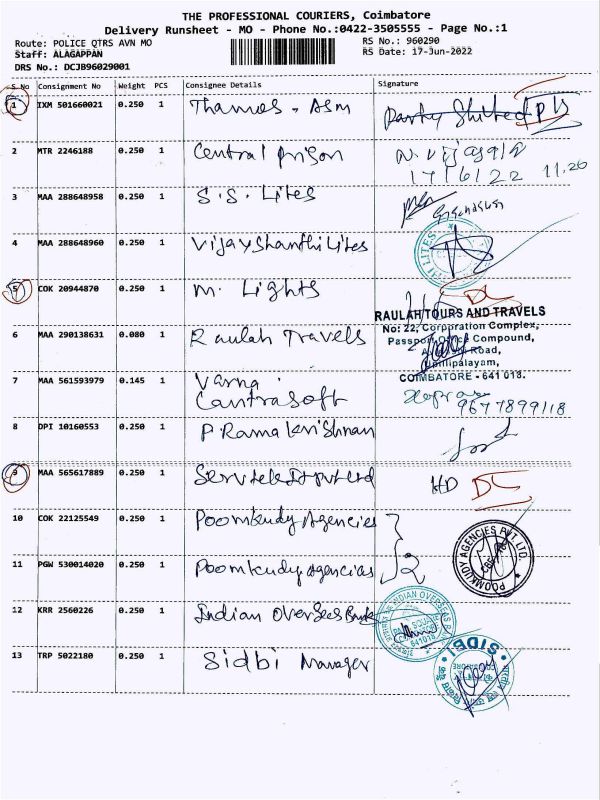 THE PROFESSIONAL COURIERS, Coimbatore
Delivery Runsheet - MO - Phone No.:0422-3505555 - Page No.:1
Route: POLICE QTRS AVN MO RS No.: 960290
Staff: ALAGAPPAN RS Date: 17-Jun-2022
DRS No.: DCJB96029001
S.No Consignment No Weight PCS Consignee Details Signature
1 IXM 501660021 0.250 1 Thamos - Asm Party Shifted
2 MTR 2246188 0.250 1 Central prison
17/6/22 11.20
3 MAA 288648958 0.250 1 S.S. Lites
4 MAA 288648960 0.250 1 Vijay Shanthi Lites
5 COK 20944870 0.250 1 M. Lights DL
RAULAH TOURS AND TRAVELS
No: 22, Corporation Complex,
6 MAA 290138631 0.080 1 Raulah Travels Passport Office Compound,
Road,
COIMBATORE - 641 018.
7 MAA 561593979 0.145 1 Varna
Cantrasoft 9677899118
8 DPI 10160553 0.250 1 P. Ramakrishnan
9 MAA 565617889 0.250 1 Servtele It pvt Ltd HD DL
10 COK 22125549 0.250 1 Poomkudy Agencies
POOMKUDY AGENCIES PVT. LTD.
11 PGW 530014020 0.250 1 Poomkudy Agencias
12 KRR 2560226 0.250 1 Indian Overseas Bank
INDIAN OVERSEAS BANK
641018
13 TRP 5022180 0.250 1 Sidbi Manager
SIDBI